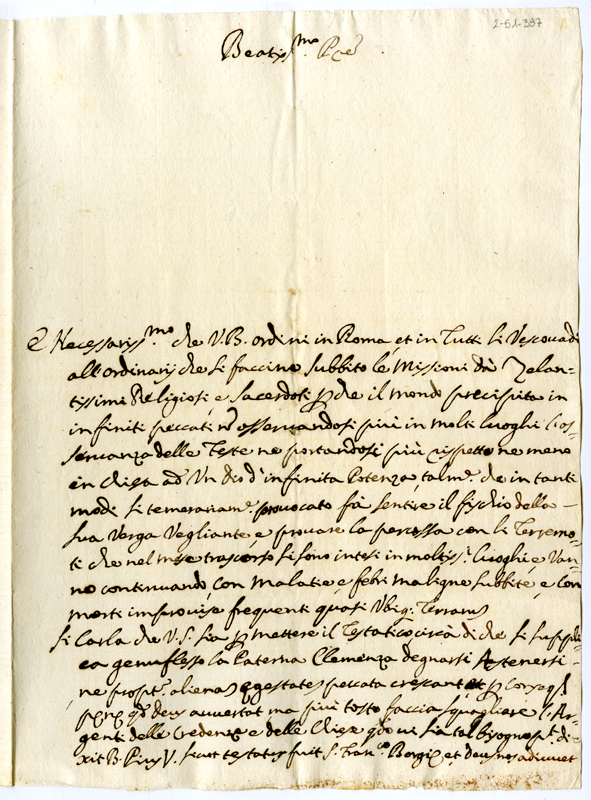 2-51-387
Beatiss.mo Pre
È Necessariss.mo che V.B. ordini in Roma, et in Tutti li Vescovadi
all'ordinarij che si faccino subbito le Missioni da Zelan-
tissimi Religiosi, e Sacerdoti p che il mondo precipita in
infiniti peccati nõ osservandosi più in molti luoghi l'os-
servanza delle feste ne portandosi più rispetto ne meno
in chiesa ad Un Dio d'infinita Potenza, talm.e che in tanti
modi si temerariam.e provocato fà sentire il fischio della
sua Verga Vegliante e provare la percossa con li Terremo-
ti che nel mese trascorso si sono intesi in moltiss.i luoghi e Van-
no continuando, con malatie e febri maligne subbite, e con
morti improvise frequenti quasi Ubiq. Terrarũ
si Parla che V.S. sia p mettere il Testatico circa di che si suppli-
ca genuflesso la Paterna Clemenza degnarsi Astenersi
ne propt. alienas egestates peccata crescant et p conseq.
Deus avertat ma più tosto faccia squagliare l'Ar-
genti delle Credenze e delle Chiese qdo vi sia tal bisogno pt. di-
xit B. Pius V. sicut testatus fuit S. Fran.co Borgia et Deus nos adiuvet